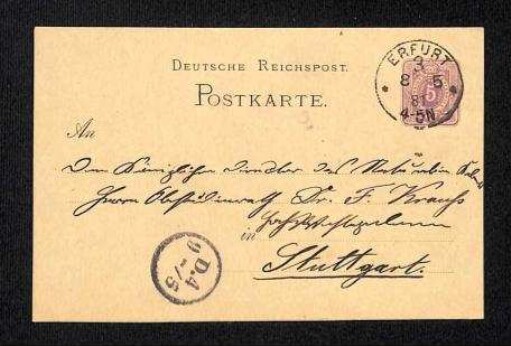 DEUTSCHE REICHSPOST.
POSTKARTE.
ERFURT
3
8 5
81
4-5N
5
An
Den Königlichen Director des
Herrn Dr. F. Krauss
in
Stuttgart.
D.4
9 - /5